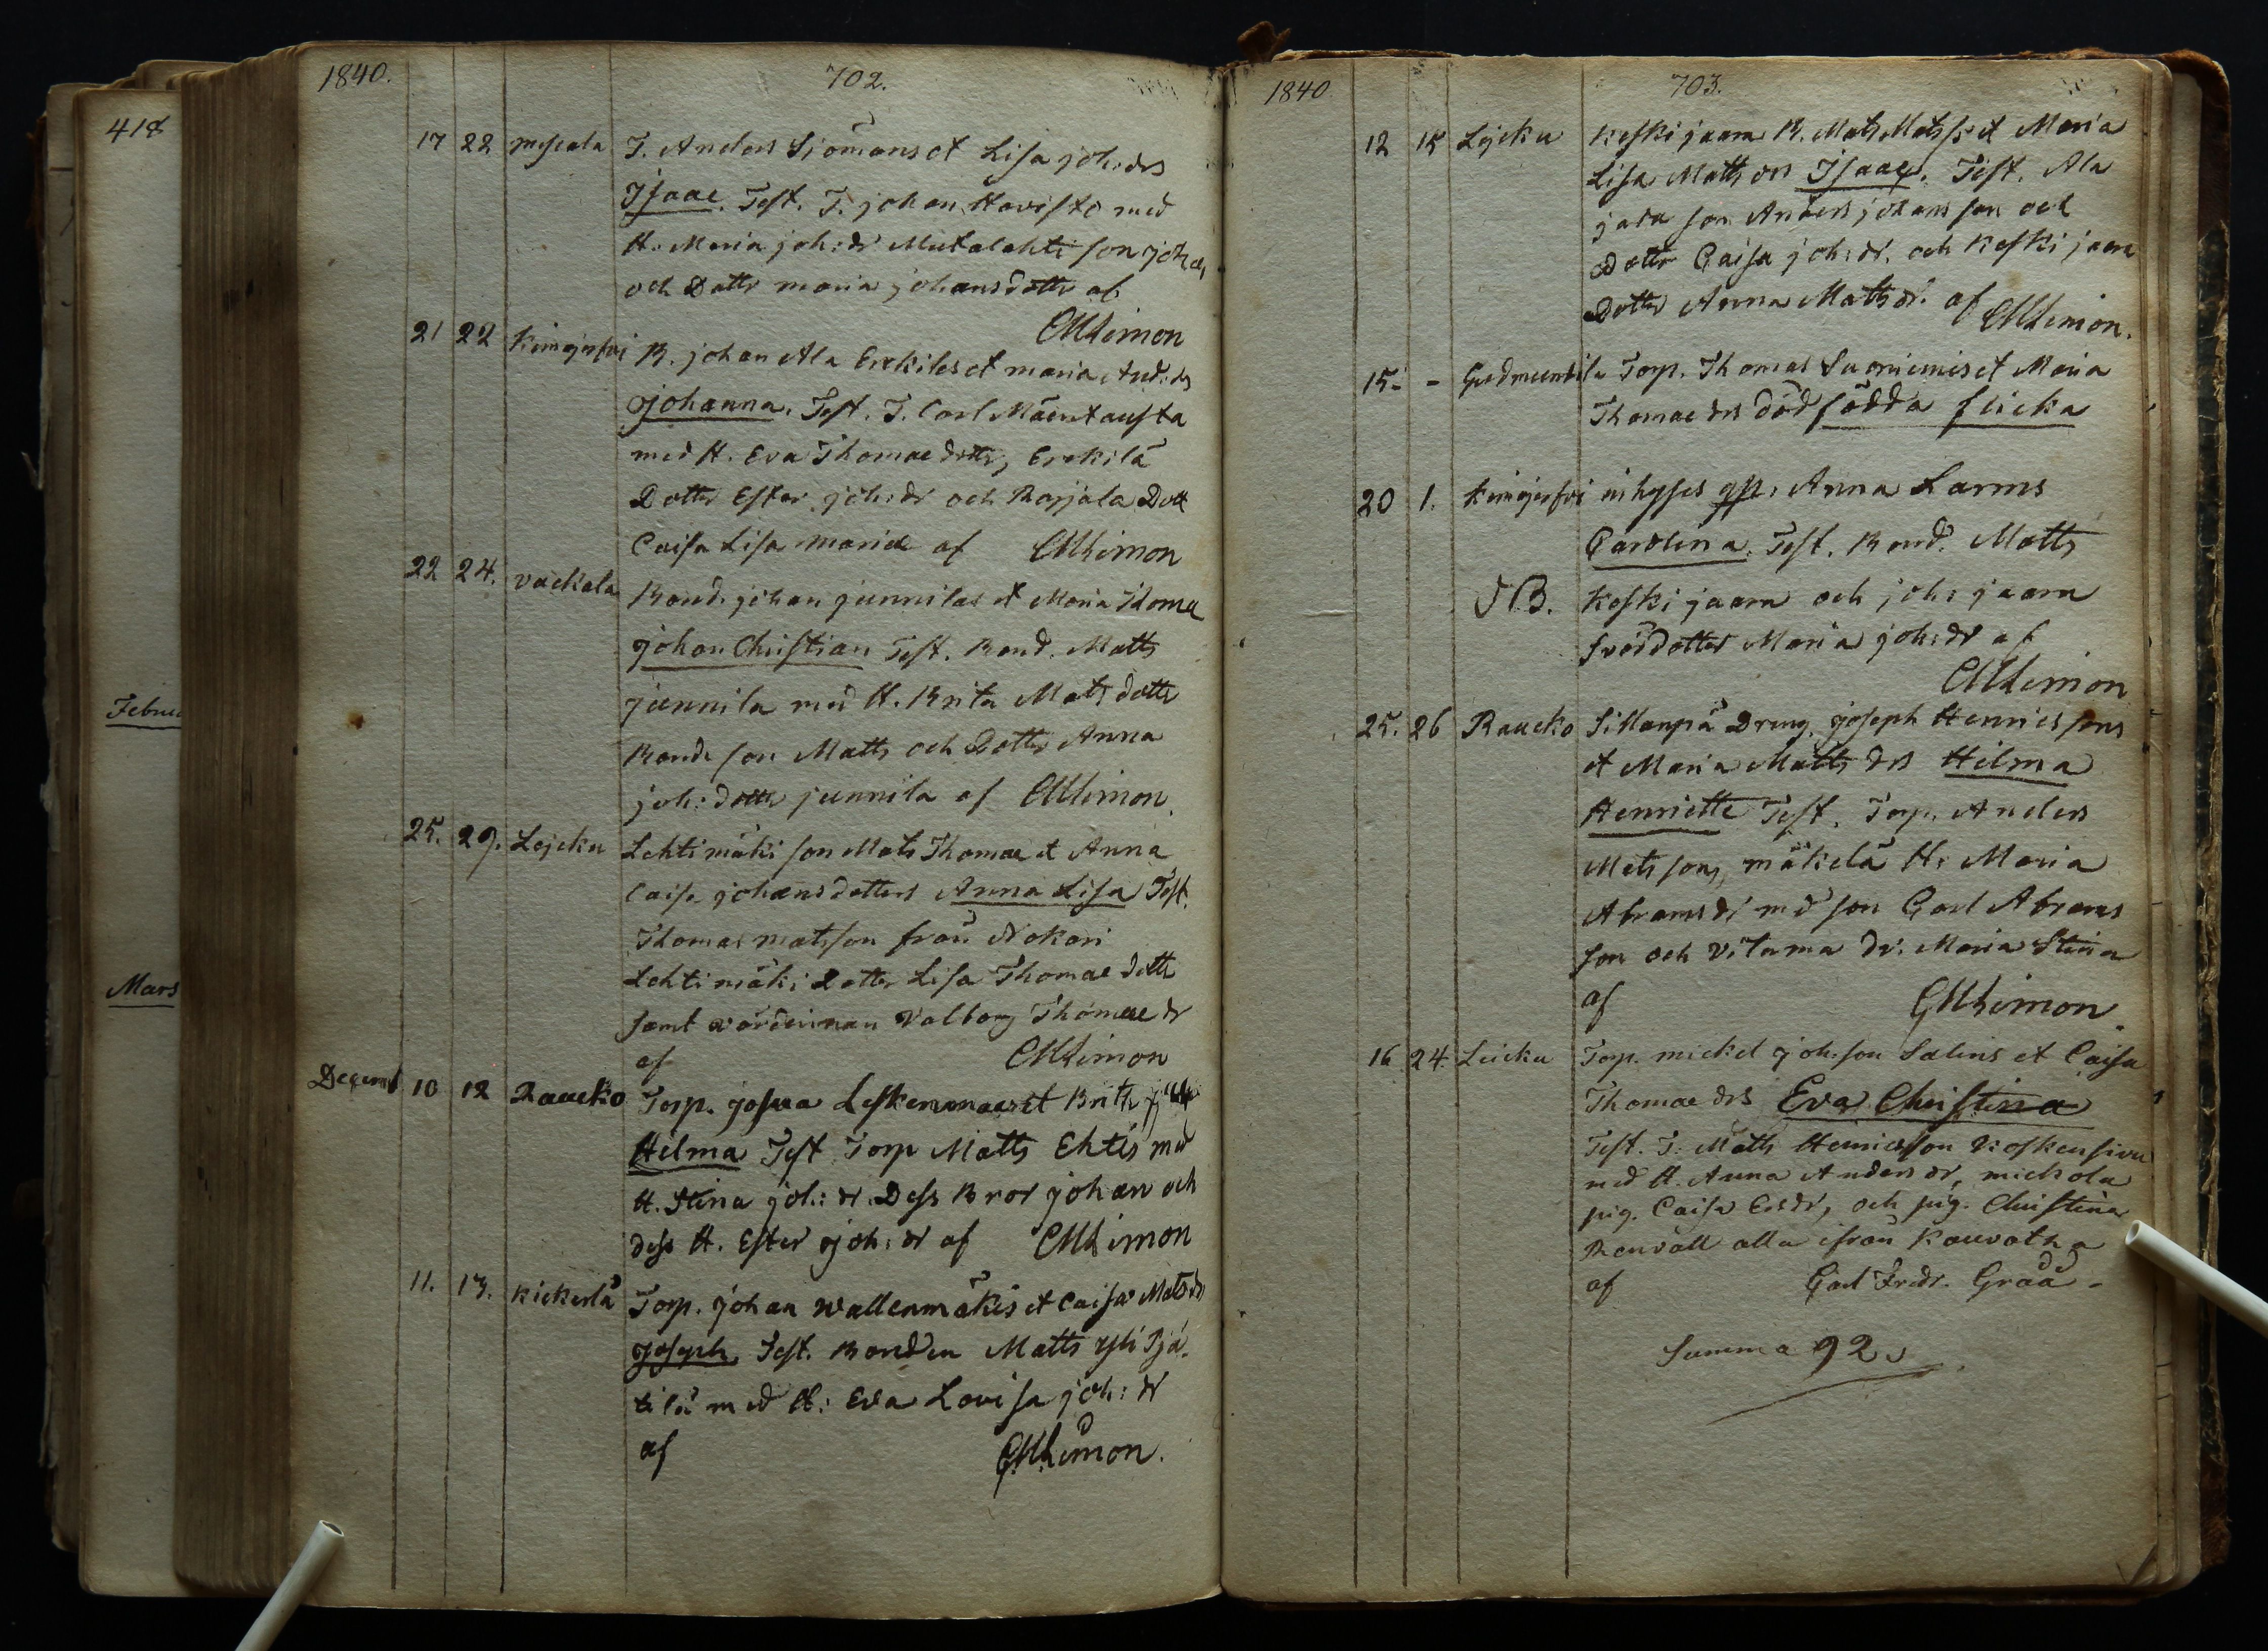 418
Februa
Mars
1840. 702.
17 22 muscala T. Anders Sjömans et Lisa joh: drs
Isaac. Test. T. johan Havisto med
H: Maria joh: dr Mutalahti son joh
och Dottr maria johansdottr af
CMLimon
21 22 Kimojerfvi B. johan Ala Erckilas et maria And: drs
johanna. Test. T. Carl Mäentausta
med H. Eva Thomae dottr, Erckilä
Dotter Ester joh: dr och Borjala Dott
Caisa Lisa Maria af CMLimon
22 24. vackala Bond. johan junnilas et Maria Thoma
johan Christian Test. Bond. Matts
junnila med H. Brita Mats dottr
Bonde son Matts och Dotter Anna
joh: dottr junnila af CMLimon.
25. 29. Lejcku Lehtimäki son Mats Thomae et Anna
Caisa johansdotters Anna Lisa Test.
Thomas matsson från Nokari
Lehtimäki Dotter Lisa Thomae dottr
samt värdinnan Valborg Thomae dr
af CMLimon
Decemb 10 12 Raucko Torp. josua Leskenmaas et Brita
Hilma Test Torp Matts Ehtis med
H. Stina joh: dr. Dess Bror johan och
dess H. Ester joh: dr af CMLimon
11. 13. Kickerlä Torp. johan Wallenmäkis et Caisa Mats drs
joseph. Test. Bonden Matts yli Pjä-
tilä med H: Eva Lovisa joh: dr
af CMLimon.
1840 703.
12 15 Lejcku Keski jaara B. Mats Mats s: et Maria
Lisa Matts drs Isaac. Test. Ala
jara son Anders johansson och
dotter Caisa joh: dr. och Keski jaara
Dotter Anna Mattsdr. af CMLimon.
15. - Gudmundila Torp. Thomas Suoniemis et Maria
Thomae drs dödfödda flicka
20 1. Kimojerfvi inhyses qp: Anna Larms
Carolina. Test. Bond. Matts
NB. Keski jaara och joh: jaara
svärdotter Maria joh: dr af
CMLimon
25. 26 Raucko Sillanpä Dreng. joseph Henricssons
et Maria Matts drs Hilma
Henriette Test. Torp. Anders
Matsson, mäkelä H: Maria
Abrams dr md son Carl Abrams
son och Vilama dr: Maria Stina
af CMLimon.
16 24. Leicku Torp. mickel joh. son Salins et Caisa
Thomae drs Eva Christina
Test. T. Matts Henricsson Koskensivu
med H. Anna Anders dr, mickola
pig. Caisa Ersdr, och pig. Christina
Renvall alla ifrån Kauvatsa
af Carl Fredr. Gråå -
Summa 92.